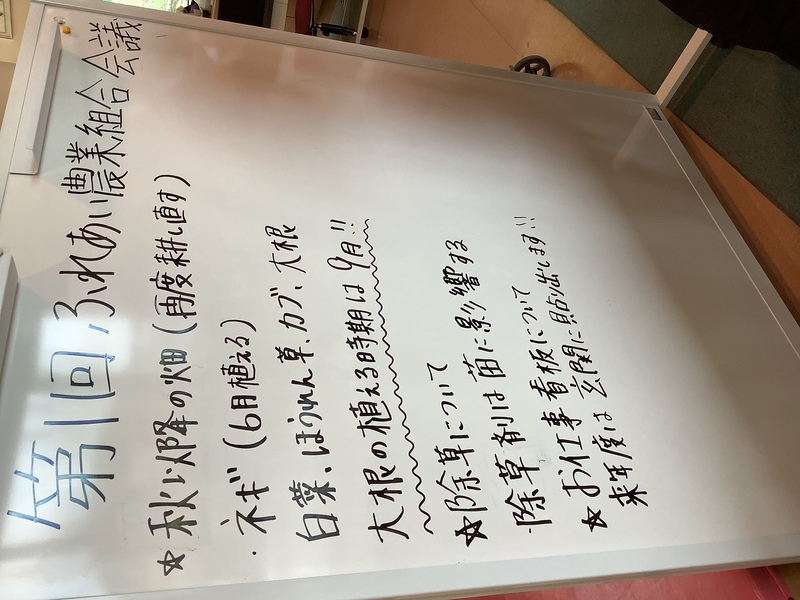 第1回ふれあい農業組合会議
☆秋以降の畑(再度耕し直す)
・ネギ(6月植える)
白菜、ほうれん草、カブ、大根
大根の植える時期は9月!!
☆除草について
・除草剤は苗に影響する
☆お仕事看板について
来年度は玄関に貼り出します!!